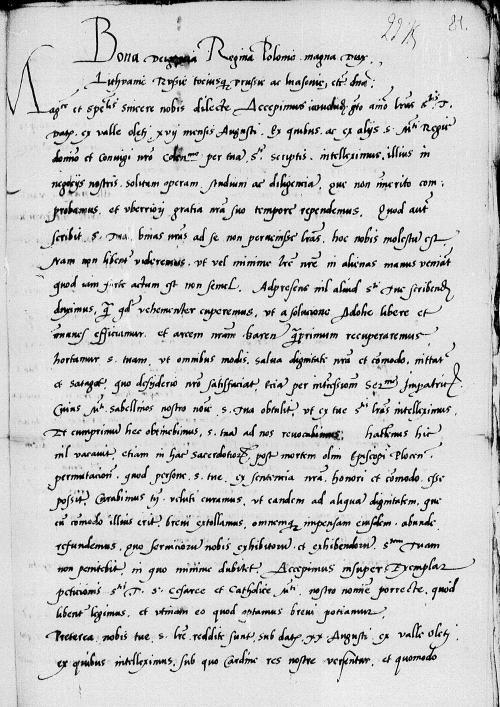 81.
Bona dei gratia Regina Polonie magna Dux
Lithvanie Rvssie totiusq prvssie ac masovie, etc. dna.
et sincere nobis dilecte Accepimus lras T.
Dat. ex valle oleti xvij mensis Augusti. Ex quibus, ac ex alijs s. Mti Regie
domino et coniugi nro Colenmo per tua s. scriptis. intelleximus, illius in
negotijs nostris, solitam operam studium ac diligencia, que non immerito com-
probamus, et vberiori gratia nra suo tempore rependemus. Quod aut
scribit s. Tua binas nras ad se non pervenisse lras, hoc nobis molestu est
Nam non libenter videremus, vt vel minime lre nre in alienas manus veniat
quod iam forte actum est non semel. Ad presens nil aliud sti Tue scribend
duximus, q qd vehementer cuperemus, vt a solucione Adohe libere et
immunes efficiamur. et arcem nram Baren q primum recuperaremus
hortamur s. tuam, vt omnibus modis, salua dignitate nra et comodo, nittat
et satagat, quo desyderio nro satisfaciat, etia per Sermo
Cuius Mti sabellinos nostro noie s. Tua obtulit, vt ex tue sti lras intelleximus.
Et cumprimu hec obtinebimus, s. tua ad nos revocabimus hactenus hic
nil vacauit, etiam in hac post mortem olim Episcopi Plocen.
permutacioni, quod persone s. tue, ex sententia nra, honori et comodo esse
possit, Curabimus tn, veluti curamus, vt tandem ad aliqua dignitatem, que
cu comodo illius erit, brevi extollamus, omnemq impensam eiusdem abunde
refundemus, quo serviciorum nobis exhibitoru et exhibendoru, stem Tuam
non penitebit in quo minime dubitet. Accepimus insuper Exemplar
peticionis sti T. s. Cesaree et Catholice Mti. nostro nomine porrecte, quod
libenter legimus, et vtinam eo quod optamus brevi potiamur.
Preterea nobis tue s. lre reddite sunt, sub dat. xx Augusti ex valle Oleti.
ex quibus intelleximus, sub quo Cardine res nostre versentur, et quomodo